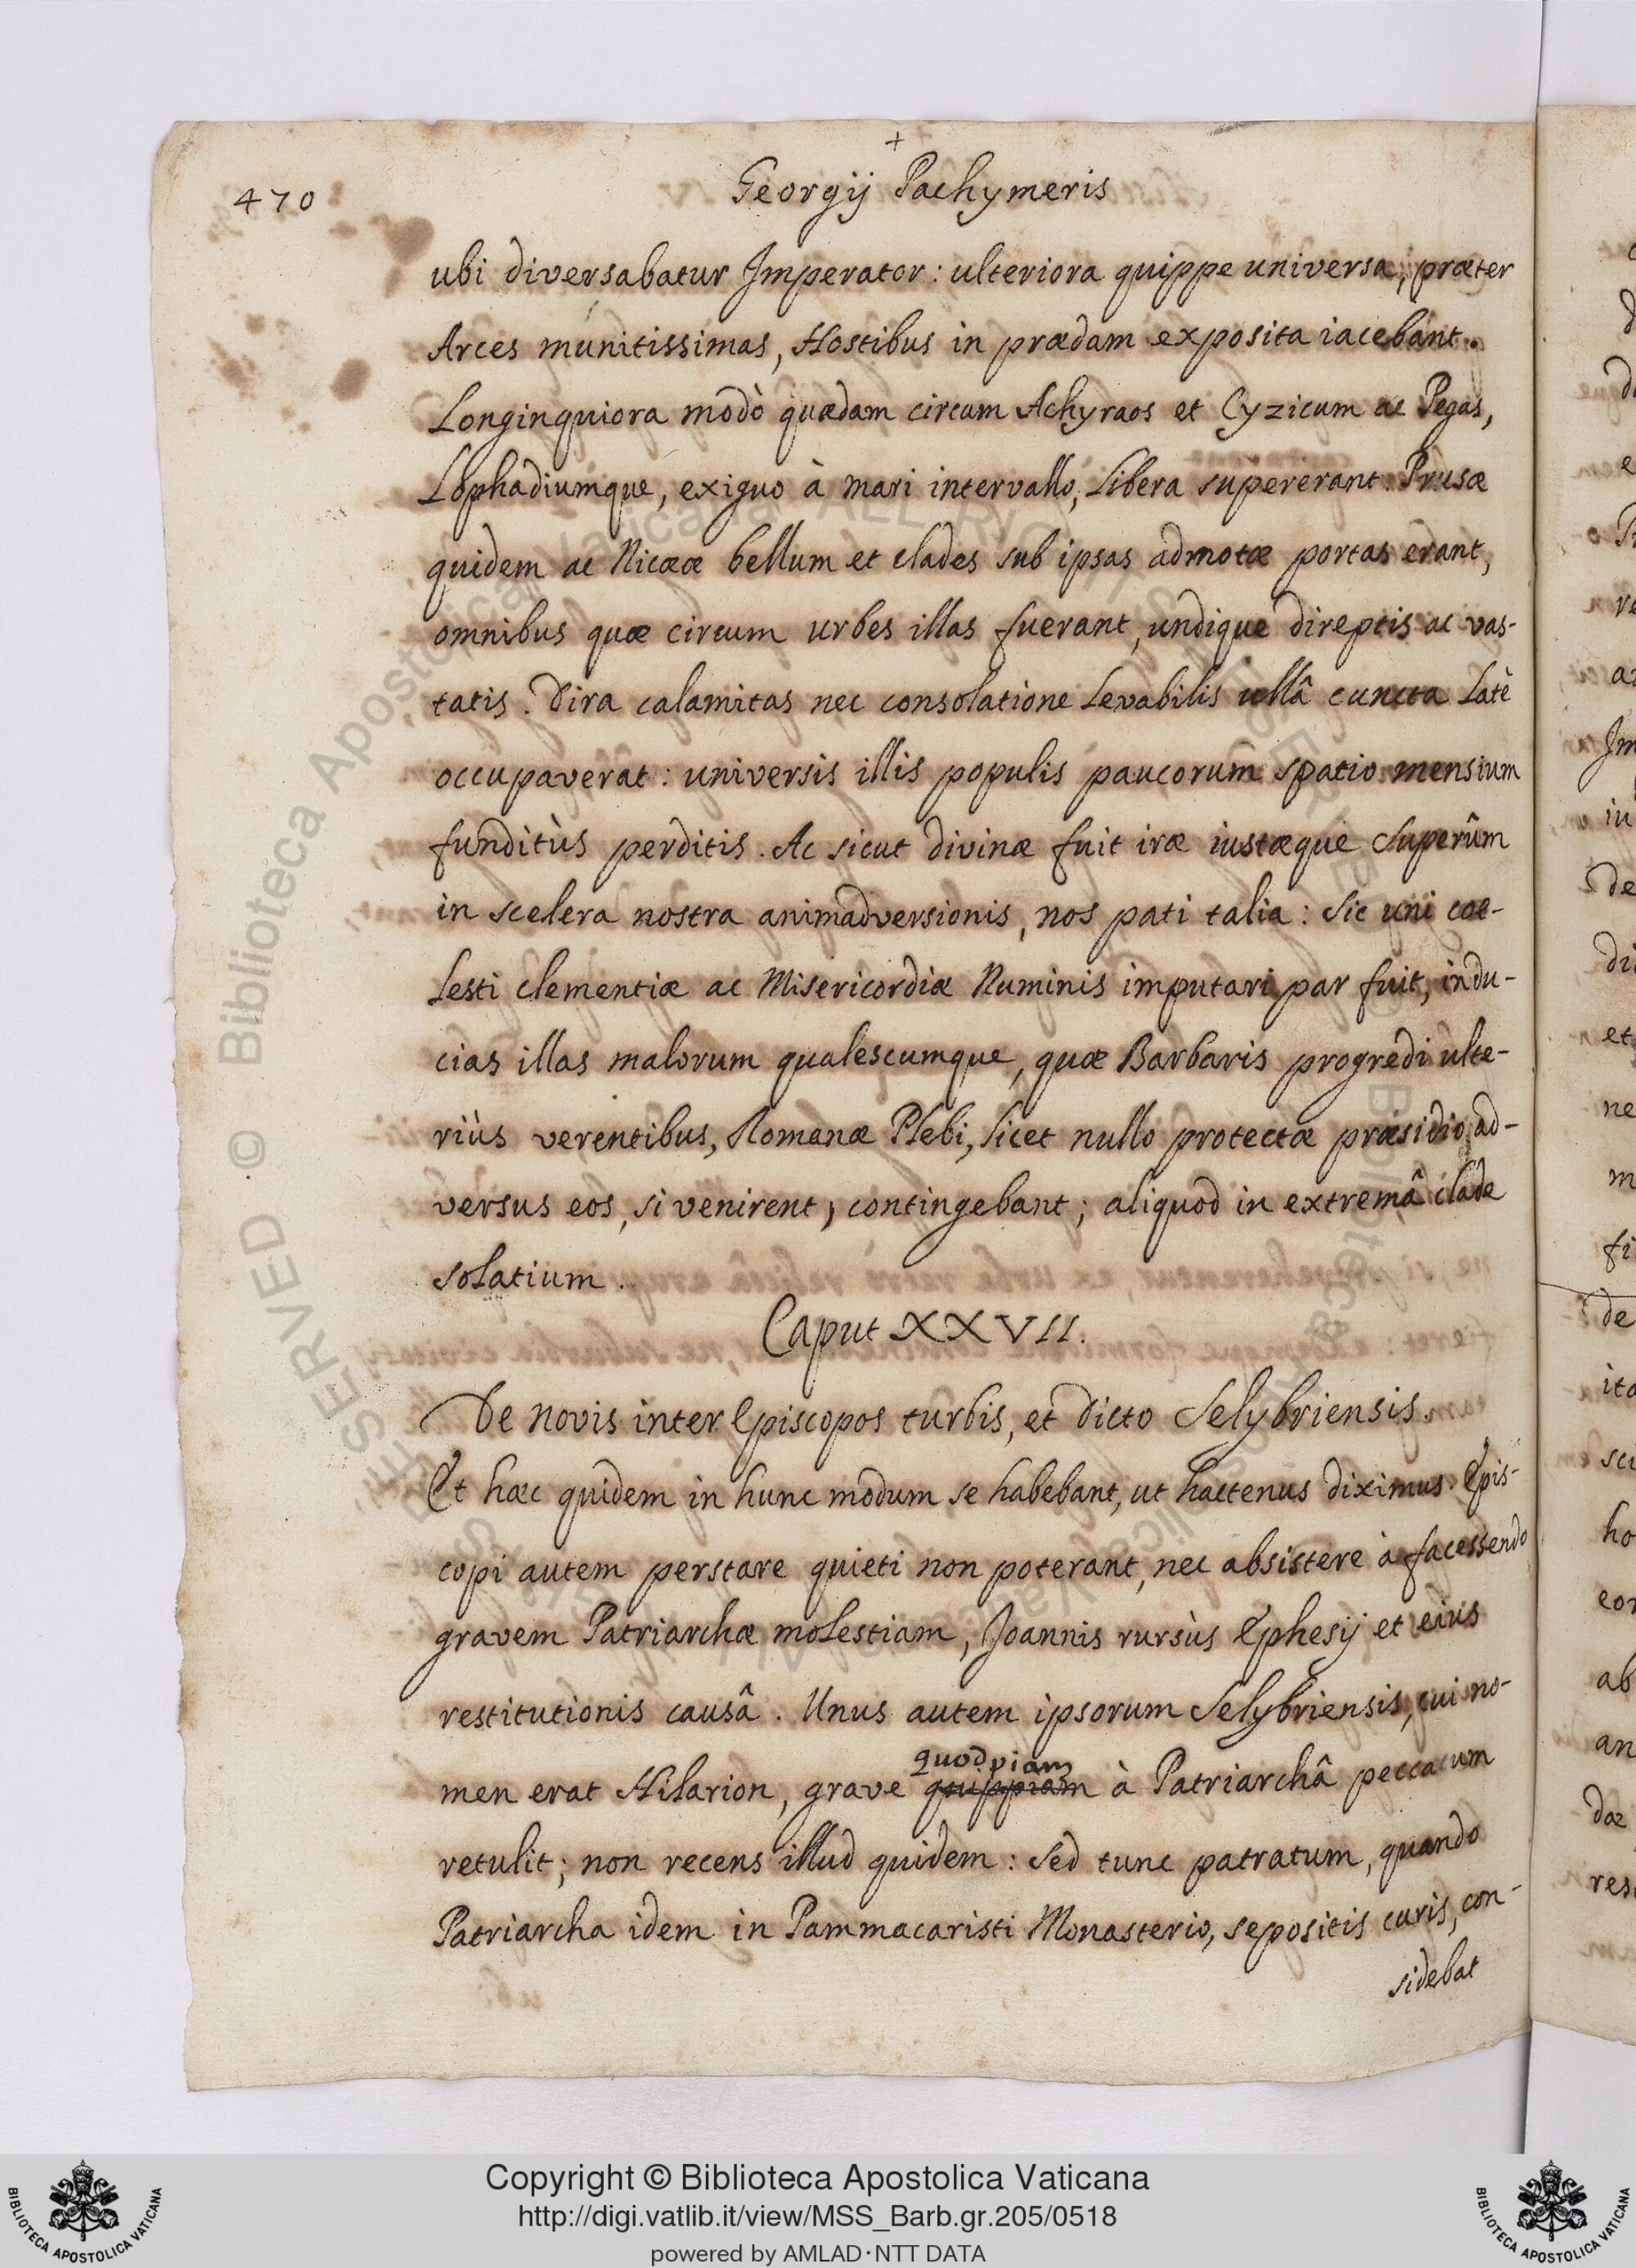 +
470
Georgij Pachymeris
ubi diversabatur Imperator: ulteriora quippe universa, præter
Arces munitissimas, Hostibus in prædam exposita iacebant.
Longinquiora modò quædam circum Achyraos et Cyzicum ac Pegas,
Lophadiumque, exiguo à mari intervallo, libera supererant. Prusæ
quidem ac Nicææ bellum et clades sub ipsas admotæ portas erant,
omnibus quæ circum urbes illas fuerant, undique direptis ac vas-
tatis. Dira calamitas nec consolatione levabilis ullâ cuncta latè
occupaverat: universis illis populis paucorum spatio mensium
funditùs perditis. Ac sicut divinæ fuit iræ iustæque Superûm
in scelera nostra animadversionis, nos pati talia: sic uni cœ-
lesti clementiæ ac Misericordiæ Numinis imputari par fuit, indu-
cias illas malorum qualescumque, quæ Barbaris progredi ulte-
riùs verentibus, Romanæ Plebi, licet nullo protectæ præsidio ad-
versus eos, si venirent, contingebant; aliquod in extremâ clade
solatium.
Caput XXVII.
De novis inter Episcopos turbis, et dicto Selybriensis.
Et hæc quidem in hunc modum se habebant, ut hactenus diximus. Epis-
copi autem perstare quieti non poterant, nec absistere à facessendo
gravem Patriarchæ molestiam, Joannis rursùs Ephesij et eius
restitutionis causâ. Unus autem ipsorum Selybriensis, cui no-
quodpiam
men erat Hilarion, grave quippiam à Patriarchâ peccatum
retulit; non recens illud quidem: sed tunc patratum, quando
Patriarcha idem in Pammacaristi Monasterio, sepositis curis, con-
sidebat
Copyright © Biblioteca Apostolica Vaticana
http://digi.vatlib.it/view/MSS_Barb.gr.205/0518
powered by AMLAD·NTT DATA
BIBLIOTECA APOSTOLICA VATICANA
BIBLIOTECA APOSTOLICA VATICANA